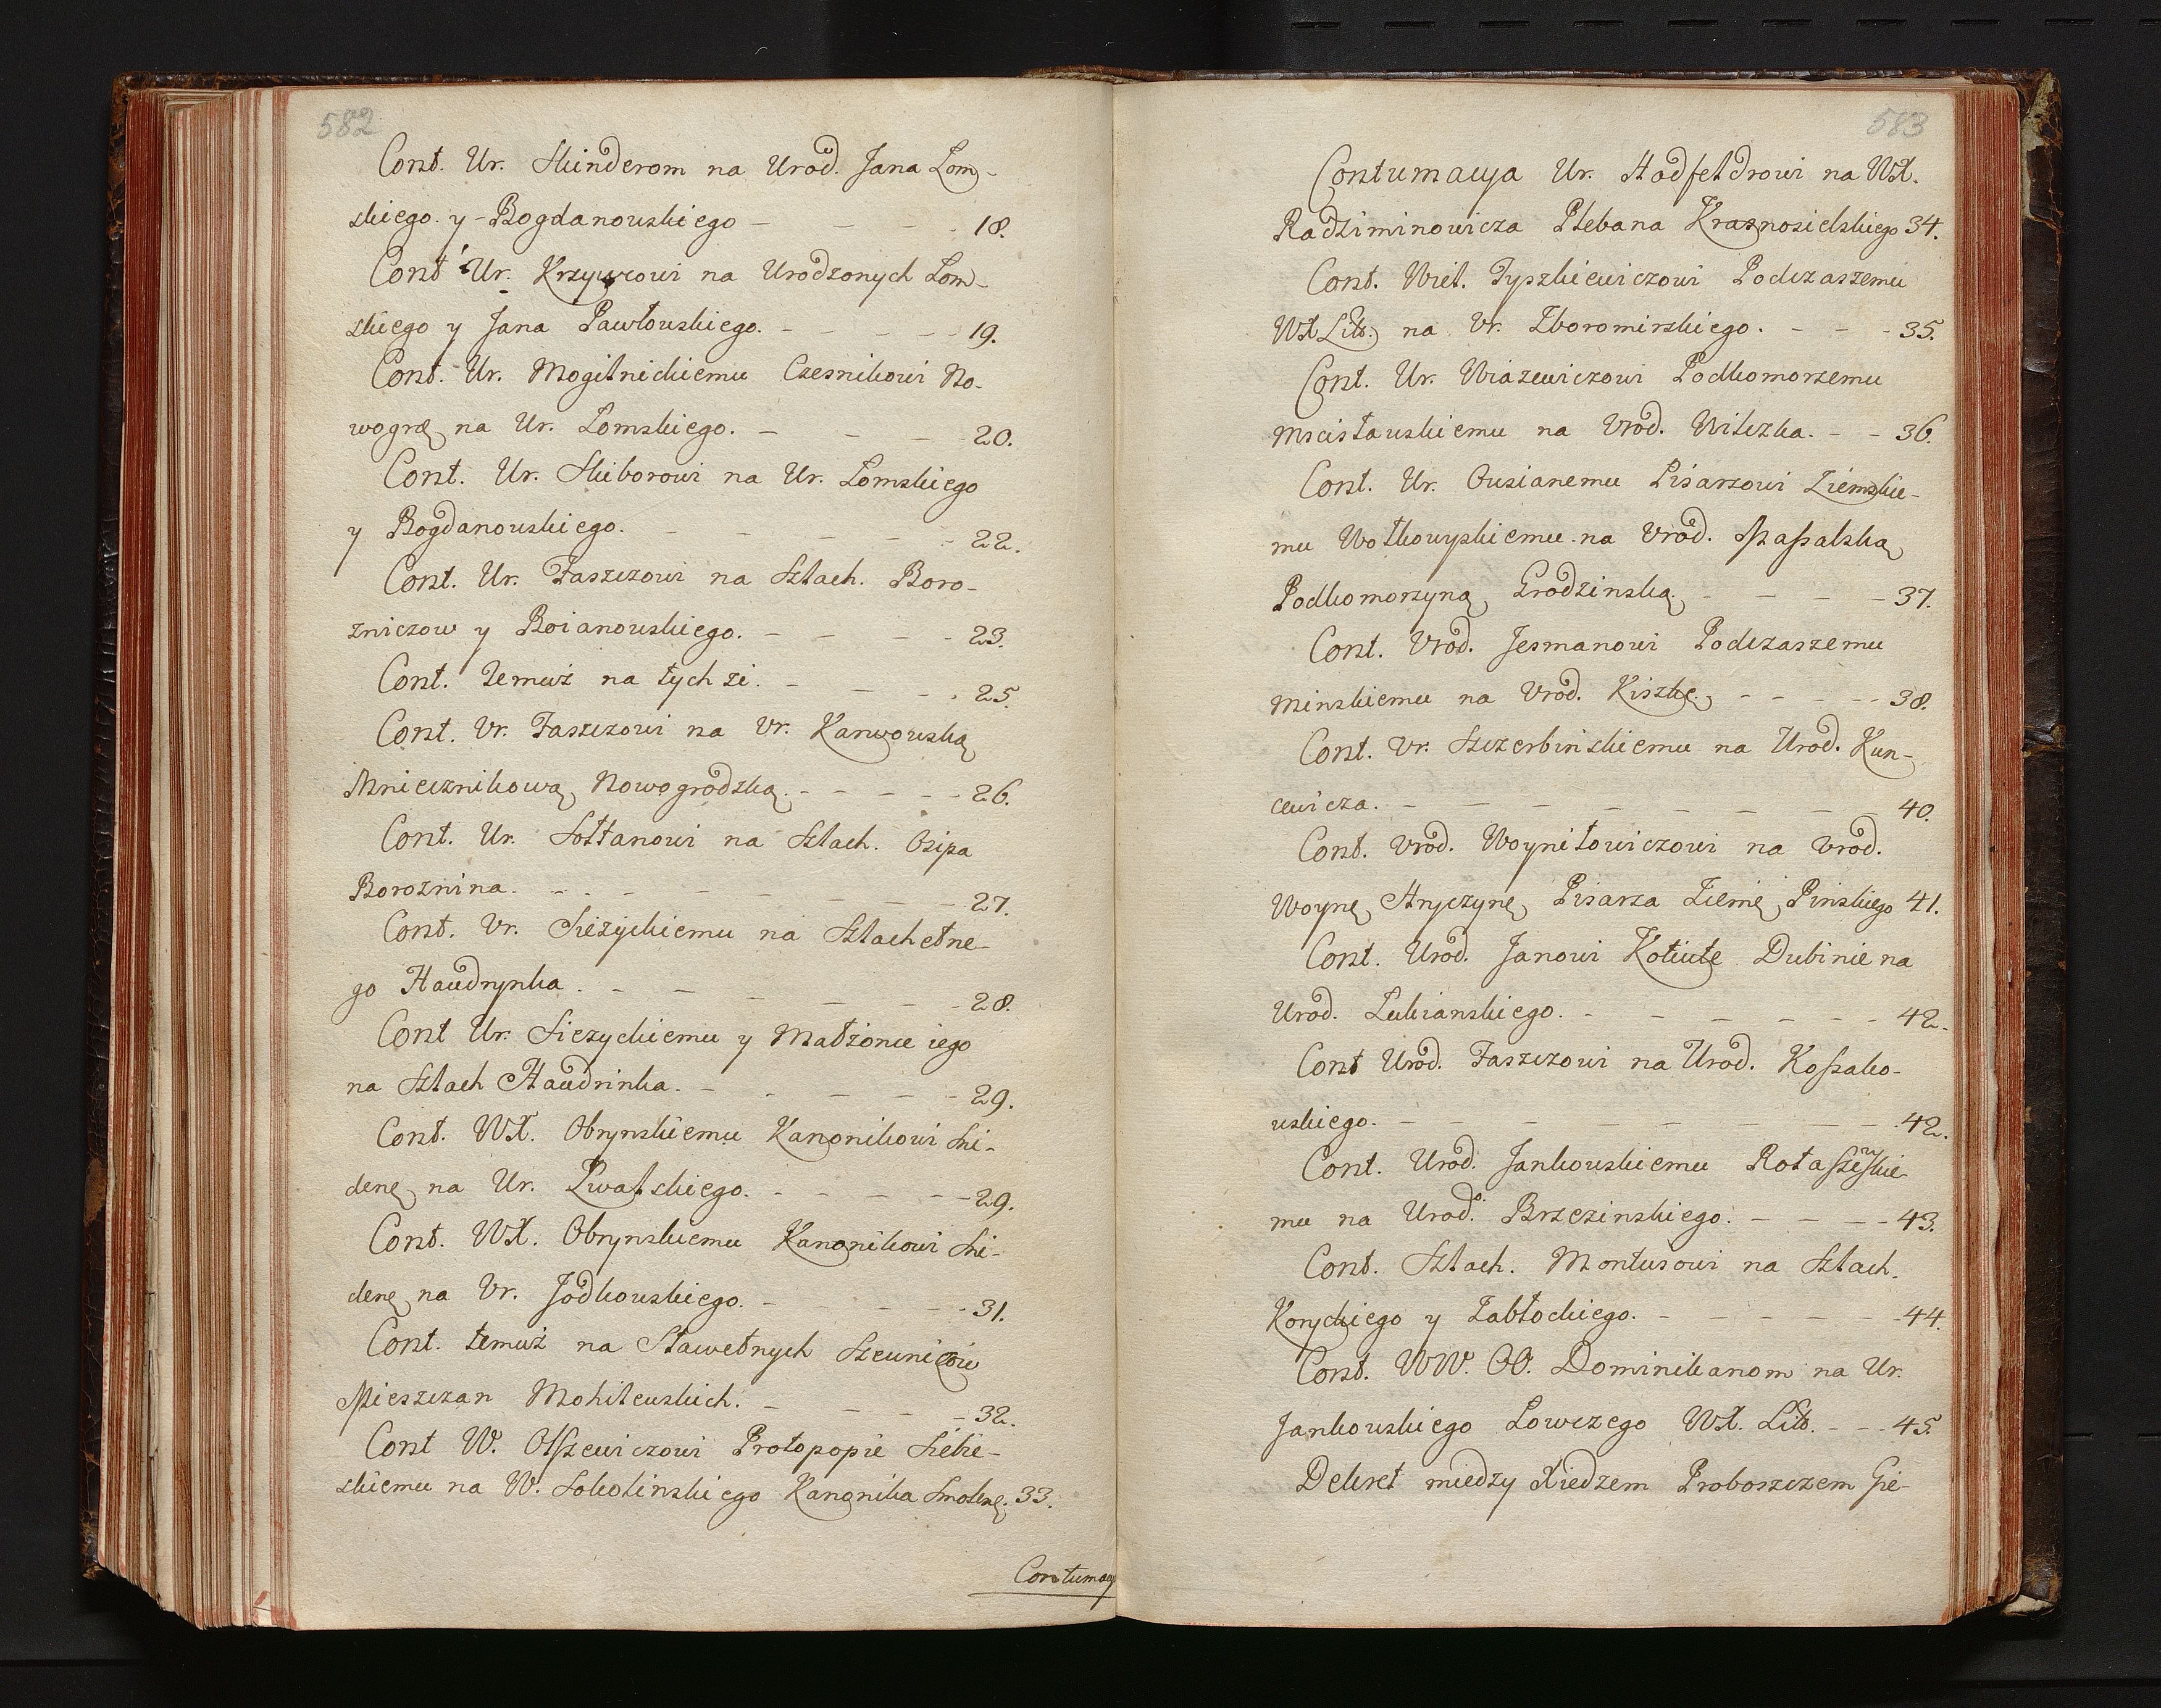 582
Cont. Ur. Skinderom na Urod. Jana Lom-
skiego. y Bogdanowskiego - - - - 18.
Cont Ur. Krzywcowi na Urodzonych Lom-
skiego y Jana Pawłowskiego. - - - - 19.
Cont. Ur. Mogilnickiemu Czesnikowi No-
wogrą na Ur. Lomskiego. - - - - 20.
Cont. Ur. Skiborowi na Ur. Lomskiego
y Bogdanowskiego. - - - - - 22.
Cont. Ur. Faszczowi na Szlach. Boro-
zniczow y Boianowskiego. - - - - 23.
Cont. Temuż na tychże. - - - - 25.
Cont. Vr. Faszczowi na Vr. Karwowską
Mniecznikową Nowogrodzką. - - - - - 26.
Cont. Ur. Sołtanowi na Szlach. Osipa
Boroznina. - - - - - - - 27.
Cont. Vr. Sieżyckiemu na Szlachetne-
go Haudrynka. - - - - - - 28.
Cont Ur. Siezyckiemu y Małżonce iego
na Szlach Haudrinka. - - - - - 29.
Cont. WX. Obrynskiemu Kanonikowi Smi-
denę na Ur. Lwatskiego. - - - - - 29.
Cont. WX. Obrynskiemu Kanonikowi Smi-
denę na Vr. Jodkowskiego. - - - - 31.
Cont. temuż na Sławetnych Szewnicow
Mieszczan Mohilewskich. - - - - 32.
Cont W. Olszewiczowi Protopopie Siebie-
skiemu na W. Sokolinskiego Kanonika Smolenę. 33.
Contumacy
583
Contumacya Ur. Hadfeldrowi na WX.
Radziminowicza Plebana Krasnosielskiego 34.
Cont. Wiel. Tyszkiewiczowi Podczaszemu
WXLitt. na Vr. Zboromirskiego. - - - 35.
Cont. Ur. Wiazewiczowi Podkomorzemu
Mscisławskiemu na Vrod. Wilczka. - - 36.
Cont. Ur. Ousianemu Pisarzowi Ziemskie-
mu Wołkowyskiemu na Vrod. Massalską
Podkomorzyną Grodzinską. - - - - 37.
Cont. Vrod. Jesmanowi Podczaszemu
Minskiemu na Vrod. Kiszkę. - - - - 38.
Cont. Vr. Szczerbinskiemu na Urod. Kun-
cewicza. - - - - - - - - 40.
Cont. Vrod. Woyniłowiczowi na Vrod.
Woynę Hryczynę Pisarza Ziemę Pinskiego 41.
Cont. Urod. Janowi Koliute Dubinie na
Urod. Lukianskiego. - - - - - - 42.
Cont Urod. Faszczowi na Urod. Kossako-
wskiego. - - - - - - - - 42.
Cont. Urod. Jankowskiemu Rotasze n skie-
mu na Urod. Brzezinskiego. - - - - 43.
Cont. Szlach. Montusowi na Szlach.
Koryckiego y Zabłockiego. - - - - - 44.
Cont. WW. OO. Dominikanom na Ur.
Jankowskiego Lowczego WX. Litt. - - - 45.
Dekret miedzy Xiedzem Proboszczem Gie-